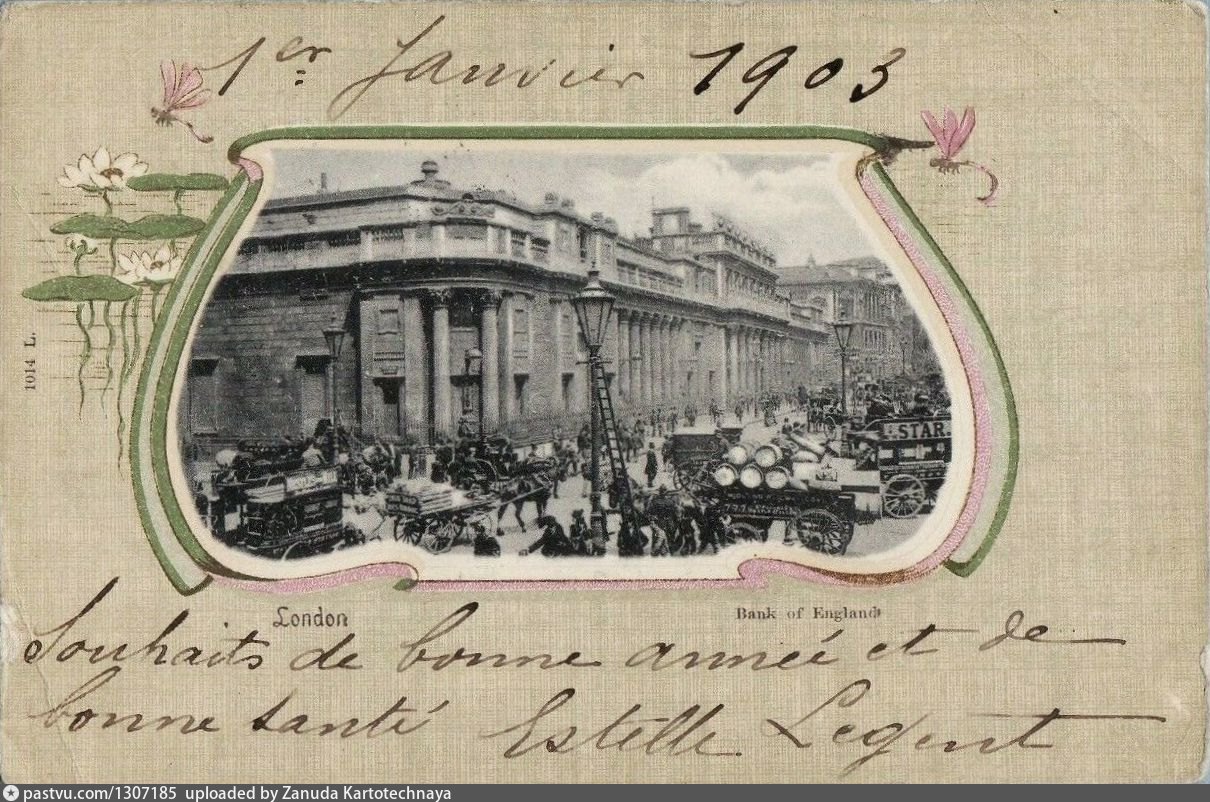 1er Janvier 1903
1014 L.
STAR.
London
Bank of England
Souhaits de bonne année et de
bonne santé Estelle Legent
pastvu.com/1307185 uploaded by Zanuda Kartotechnaya